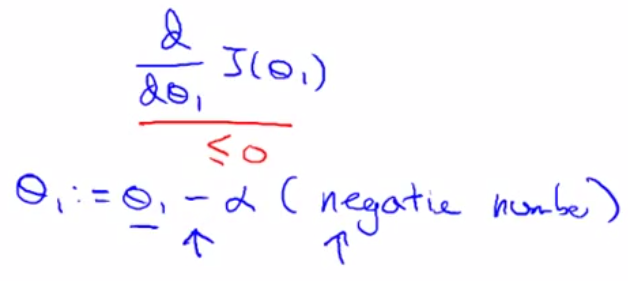 d
dθ₁ J(θ₁)
≤ 0
θ₁ := θ₁ - α (negatie number)